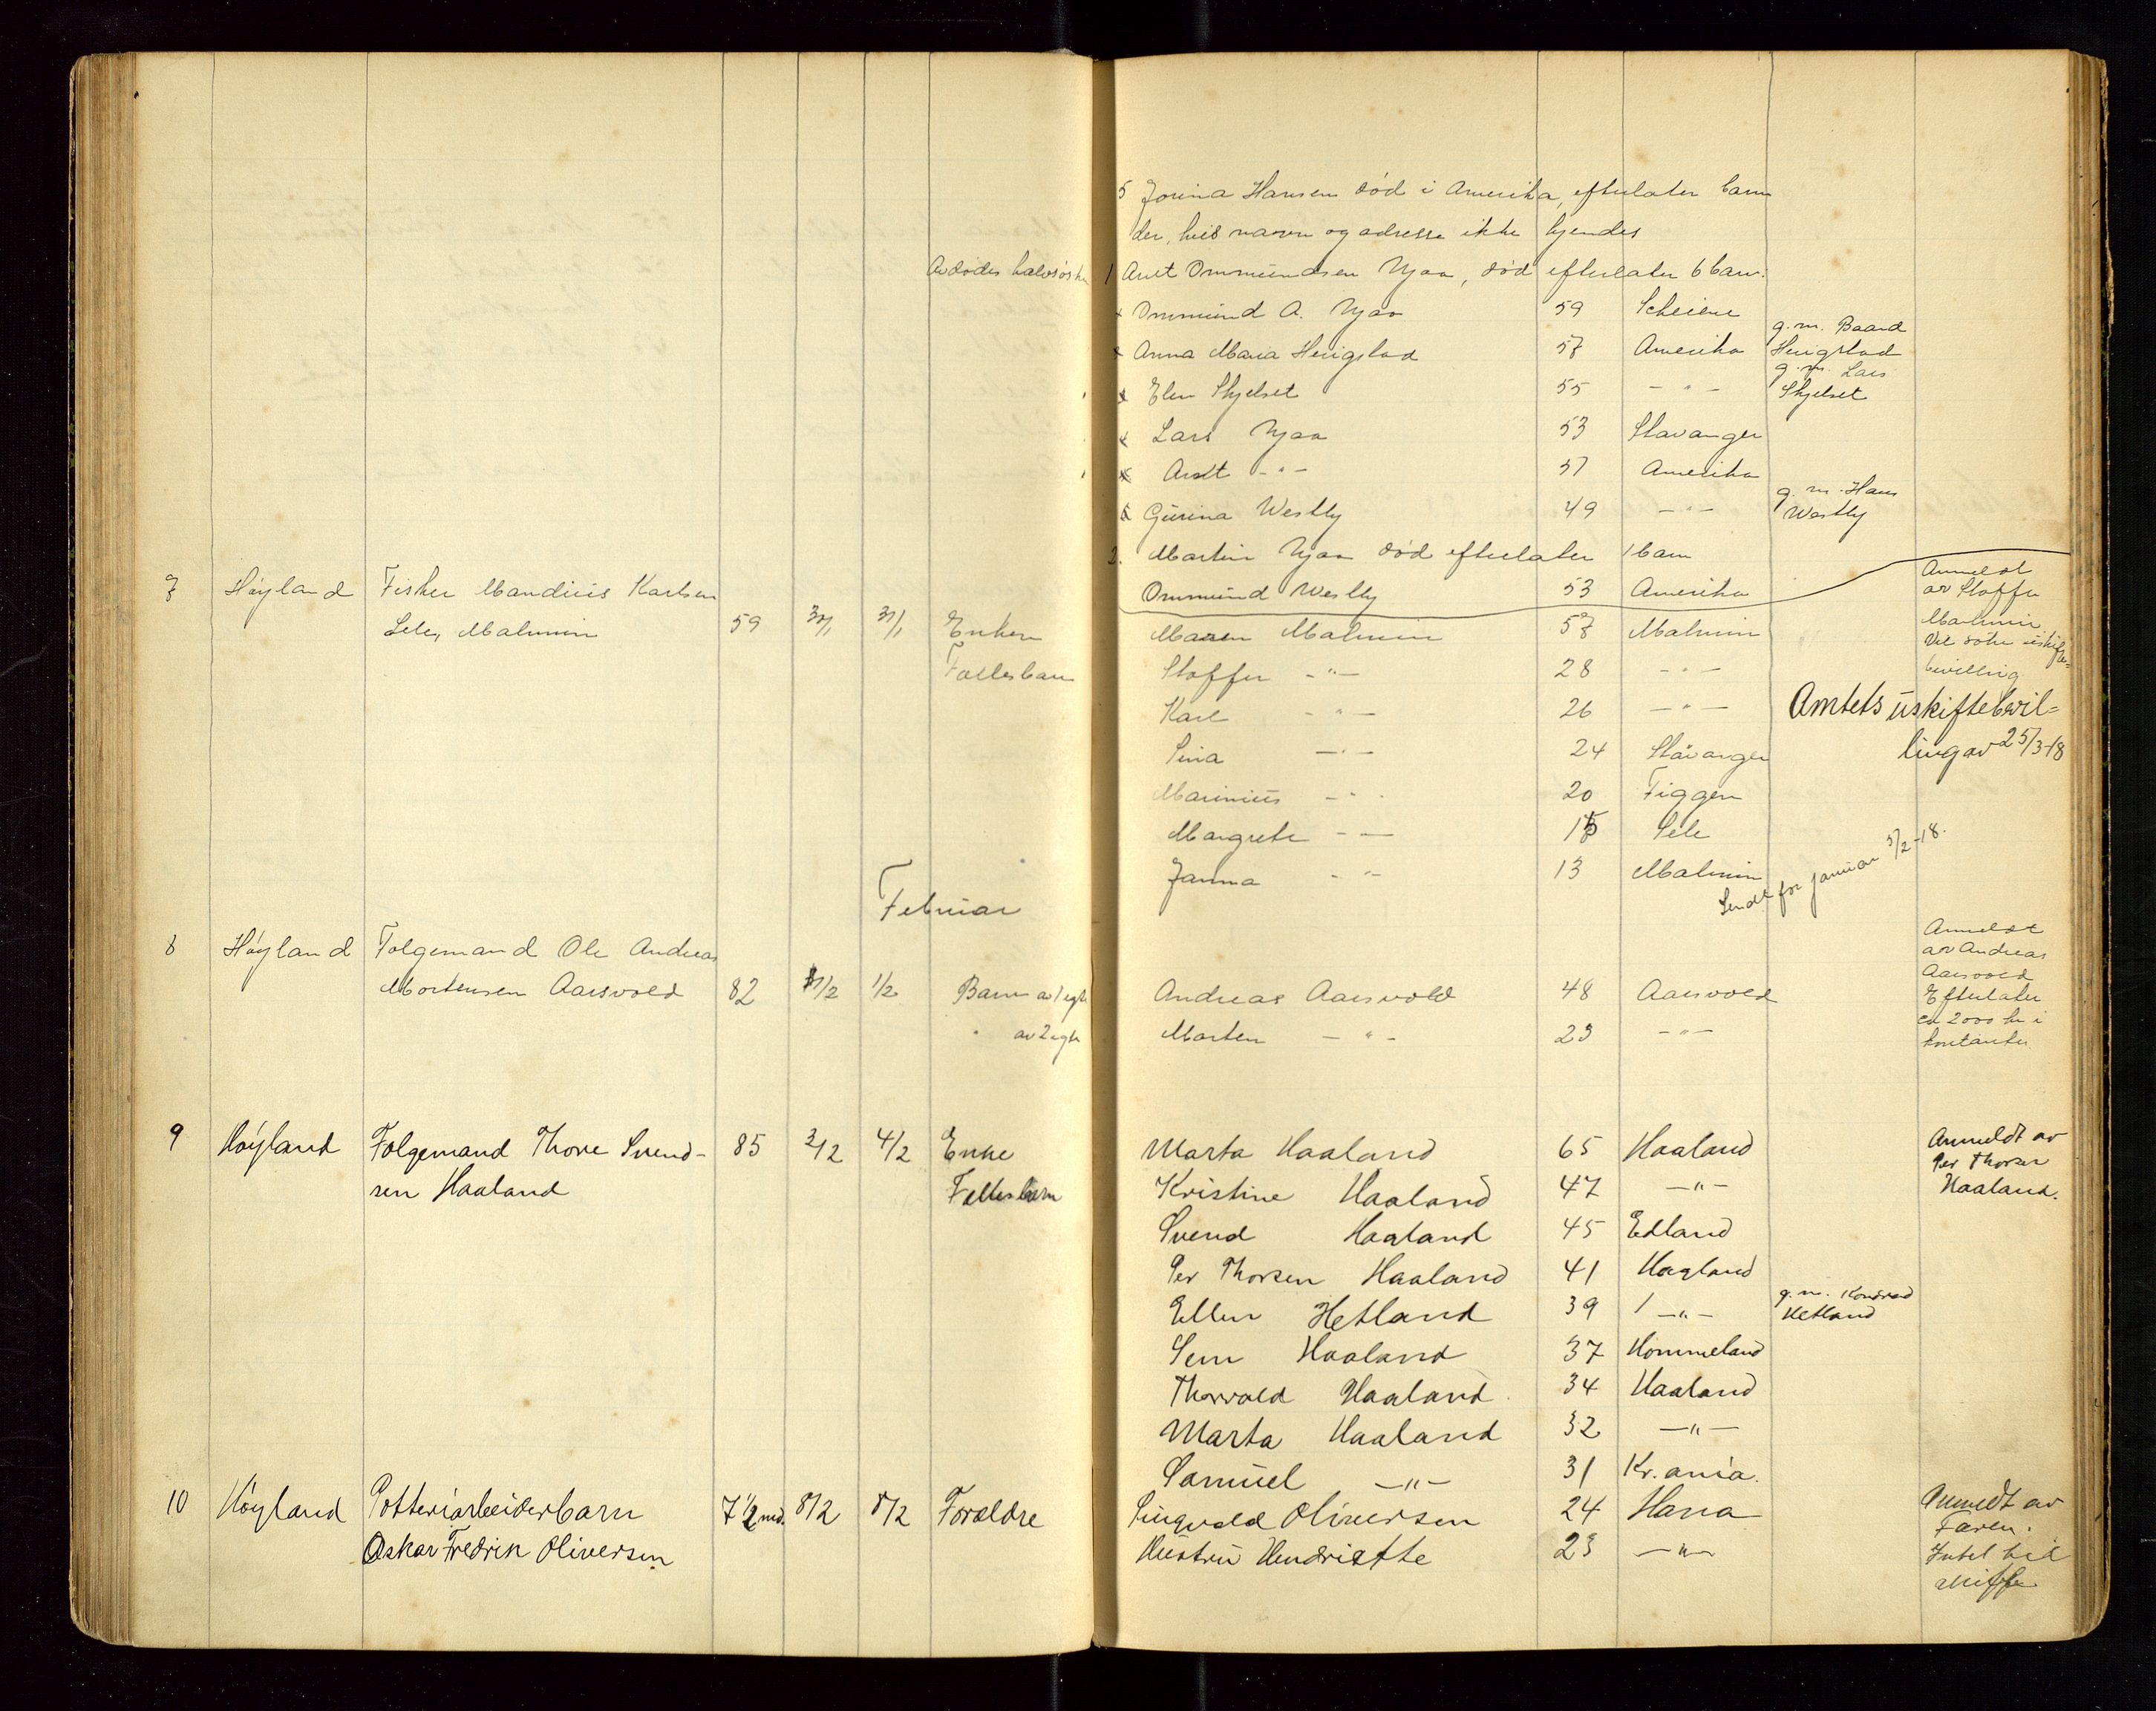 5 Jorina Hansen död i Amerika, efterlater barn
der, hvis navn og adresse ikke kjendes
Avdødes halvsøsken 1 Aret Ommundsen Njaa, död efterlater 6 barn:
x Ommund A. Njaa 59 Scheiene
x Anna Maria Herigstad 57 Amerika g. m. Baard Herigstad
x Elen Skjelset 55 — " — g. m. Lars Skjelset
x Lars Njaa 53 Stavanger
x Aret — " — 51 Amerika
x Gurina Westly 49 — " — g. m. Hans Westly
2. Martin Njaa död efterlater 1 barn
Ommund Westly 53 Amerika
7 Høyland Fisker Mandius Karlsen Anmeldt
av Stoffer
Sele, Malmin 59 30/1 31/1 Enken Maren Malmin 57 Malmin Malmin
Vil søke uskifte-
Fællesbarn Stoffer — " — 28 — " — bevilling
Karl — " — 26 — " — Amtets uskiftebevil-
Sina — " — 24 Stavanger ling av 25/3-18
Marinius — " — 20 Figgen
Margrete — " — 15 Sele
Janna — " — 13 Malmin
Sendt for januar 5/2-18.
Februar
8 Høyland Folgemand Ole Andreas Anmeldt
av Andreas
Mortensen Aarsvold 82 1/2 1/2 Barn av 1 egt Andreas Aarsvold 48 Aarsvold Aarsvold
Efterlater
" av 2 egt Morten — " — 23 — " — ca 2000 kr i
kontanter
9 Høyland Folgemand Thore Svend- 85 3/2 4/2 Enke Marta Haaland 65 Haaland Anmeldt av
Per Thorsen
sen Haaland Fellesbarn Kristine Haaland 47 — " — Haaland.
Svend Haaland 45 Edland
Per Thorsen Haaland 41 Haaland
Ellen Hetland 39 — " — g. m. Konrad Hetland
Sem Haaland 37 Hommeland
Thorvald Haaland 34 Haaland
Marta Haaland 32 — " —
Samuel — " — 31 Kr.ania.
10 Høyland Potteriarbeiderbarn 7 1/2 md. 8/2 8/2 Forældre Singvald Oliversen 24 Hana Anmeldt av
Faren.
Oskar Fredrik Oliversen Hustru Hendriette 23 — " — Intet til
skifte